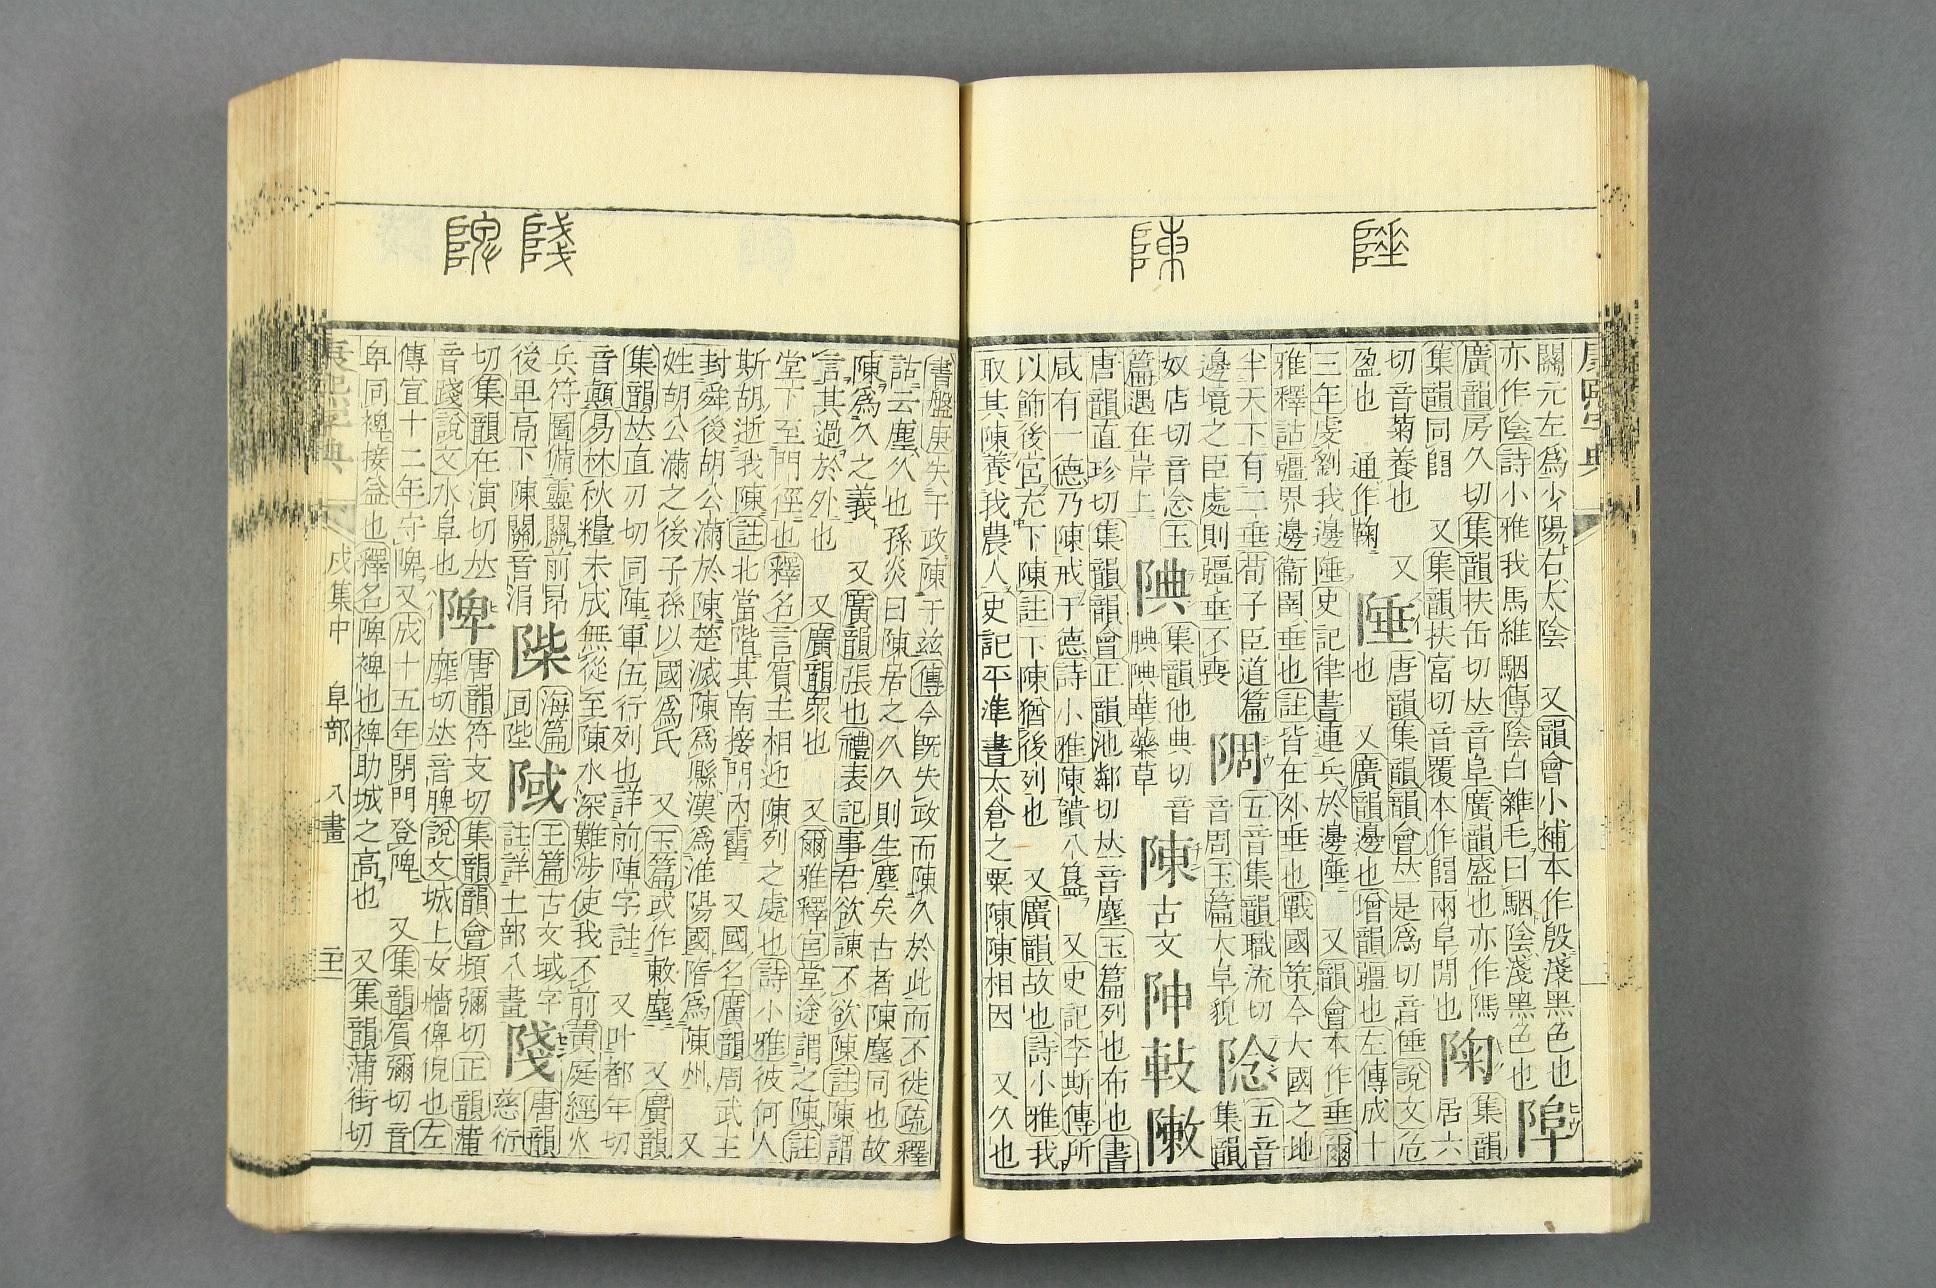 陲
陳
康熙字典
關元左爲少陽右太陰 又韻會小補本作殷淺黑色也
亦作陰詩小雅我馬維駰傳陰白雜毛曰駰陰淺黑色也
廣韻房久切集韻扶缶切𠀤音阜廣韻盛也亦作 陱 集韻
集韻同 又集韻扶富切音覆本作 兩阜閒也 居六
切音菊養也 又 陲 唐韻集韻韻會𠀤是爲切音倕說文危
盈也 通作鞠 也 又廣韻邊也增韻疆也左傳成十
三年虔劉我邊陲史記律書連兵於邊陲 又韻會本作垂爾
雅釋詁疆界邊衞圉垂也註皆在外垂也戰國策今大國之地
半天下有二垂荀子臣道篇 䧓 五音集韻職流切 䧔 五音
邊境之臣處則疆垂不喪 音周玉篇大阜貌 集韻
奴店切音念玉 䧑 集韻他典切音 陳 古文 𨸬 𢻰 𨼤
篇遇在岸上 腆䧑華藥草
唐韻直珍切集韻韻會正韻池鄰切𠀤音塵玉篇列也布也書
咸有一德乃陳戒于德詩小雅陳饋八簋 又史記李斯傳所
以飾後宮充下陳註下陳猶後列也 又廣韻故也詩小雅我
取其陳養我農人史記平準書太倉之粟陳陳相因 又久也
䧖
陴
書盤庚失于政陳于兹傳今旣失政而陳久於此而不徙疏釋
詁云塵久也孫炎曰陳居之久久則生塵矣古者陳塵同也故
陳爲久之義 又廣韻張也禮表記事君欲諫不欲陳註陳謂
言其過於外也 又廣韻衆也 又爾雅釋宮堂途謂之陳註
堂下至門徑也釋名言賓主相迎陳列之處也詩小雅彼何人
斯胡逝我陳註北當階其南接門內霤 又國名廣韻周武王
封舜後胡公滿於陳楚滅陳爲縣漢爲淮陽國隋爲陳州 又
姓胡公滿之後子孫以國爲氏 又玉篇或作敶塵 又廣韻
集韻𠀤直刃切同陣軍伍行列也詳前陣字註 又叶都年切
音顚易林秋糧未成無從至陳水深難涉使我不前黃庭經火
兵符圖備靈關前昂後卑高下陳關音涓
䧘 海篇同陛 䧕 玉篇古文域字註詳土部八畫 䧖 唐韻慈衍
切集韻在演切𠀤音踐說文水阜也
陴 唐韻符支切集韻韻會頻彌切正韻蒲
麋切𠀤音脾說文城上女牆俾倪也左
傳宣十二年守陴又成十五年閉門登陴 又集韻賔彌切音
卑同裨接益也釋名陴裨也裨助城之高也 又集韻蒲街切
康熙字典 戌集中 阜部 八畫